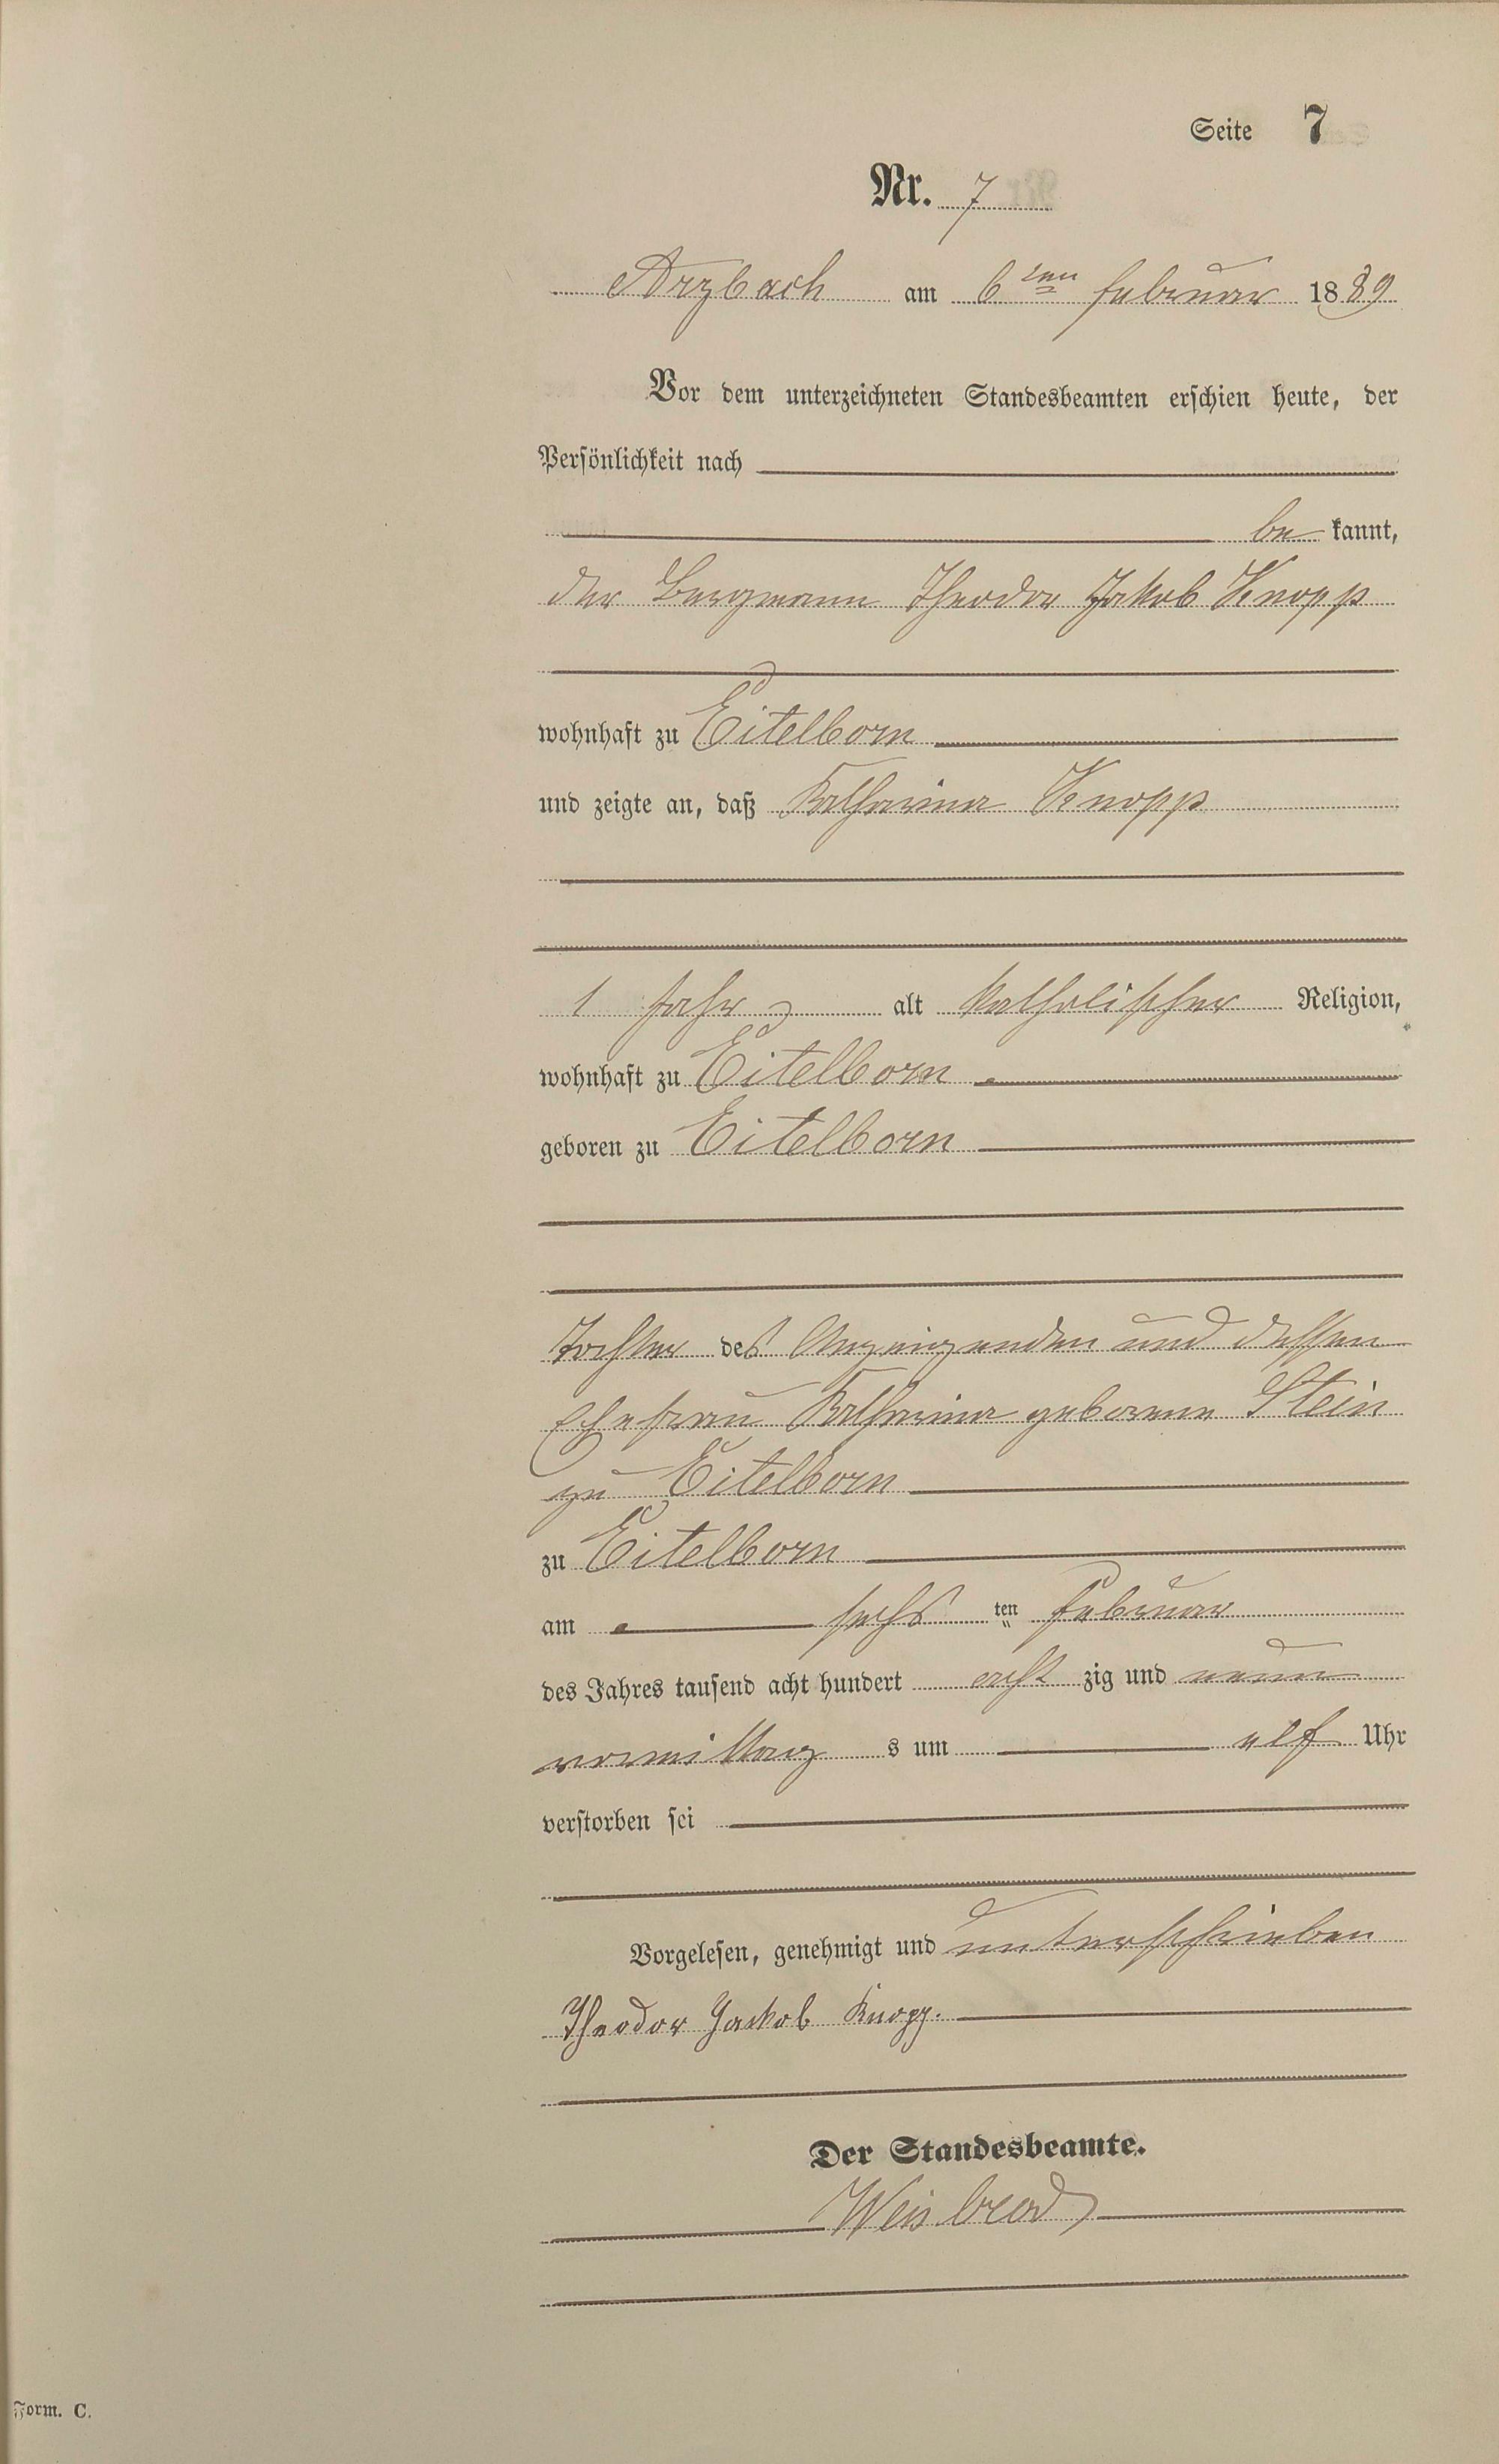 Seite 7
Nr. 7
Arzbach am 6ten Februar 1889
Vor dem unterzeichneten Standesbeamten erschien heute, der
Persönlichkeit nach
be kannt,
der Bergmann Theodor Jakob Knopp
wohnhaft zu Eitelborn
und zeigte an, daß Katharina Knopp
1 Jahr alt katholischer Religion,
wohnhaft zu Eitelborn
geboren zu Eitelborn
Tochter des Anzeigenden und dessen
Ehefrau Katharina geborene Stein
zu Eitelborn
zu Eitelborn
am sechs ten Februar
des Jahres tausend acht hundert acht zig und neun
vormittag s um elf Uhr
verstorben sei
Vorgelesen, genehmigt und unterschrieben
Theodor Jackob Knopp.
Der Standesbeamte.
Weisbrod
Form. C.